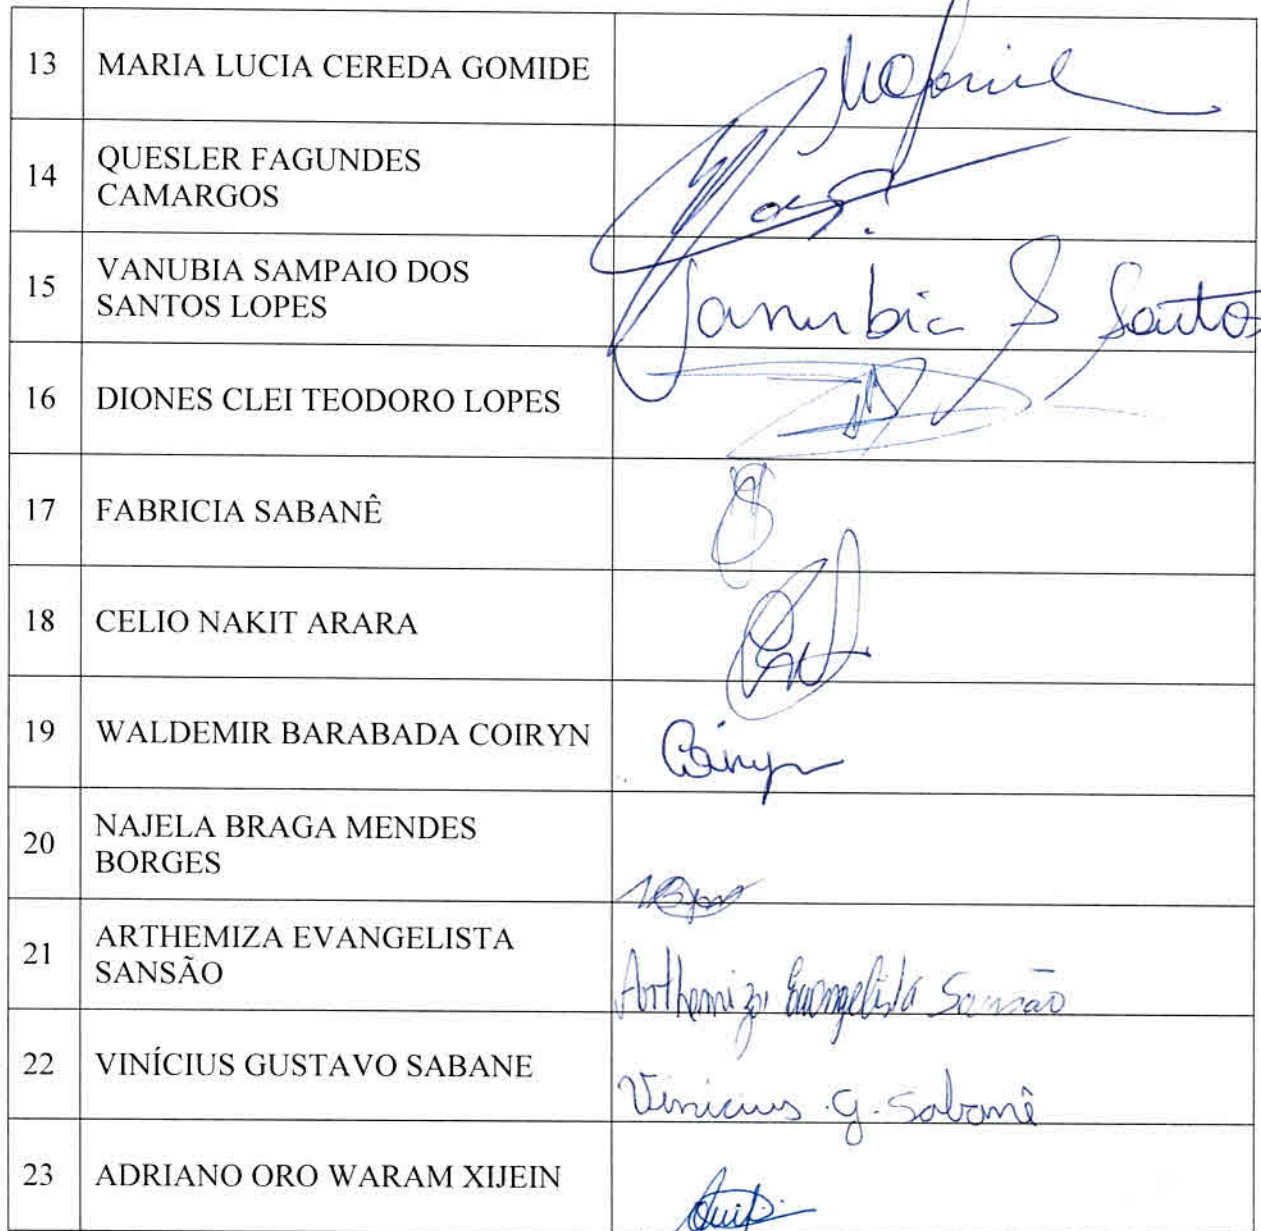 13 MARIA LUCIA CEREDA GOMIDE
14 QUESLER FAGUNDES
CAMARGOS
15 VANUBIA SAMPAIO DOS
SANTOS LOPES
Vanubia S Santos
16 DIONES CLEI TEODORO LOPES
17 FABRICIA SABANÊ
18 CELIO NAKIT ARARA
19 WALDEMIR BARABADA COIRYN
Coiryn
20 NAJELA BRAGA MENDES
BORGES
21 ARTHEMIZA EVANGELISTA
SANSÃO
Arthemiza Evangelista Sansão
22 VINÍCIUS GUSTAVO SABANE
Vinicius . G. Sabanê
23 ADRIANO ORO WARAM XIJEIN